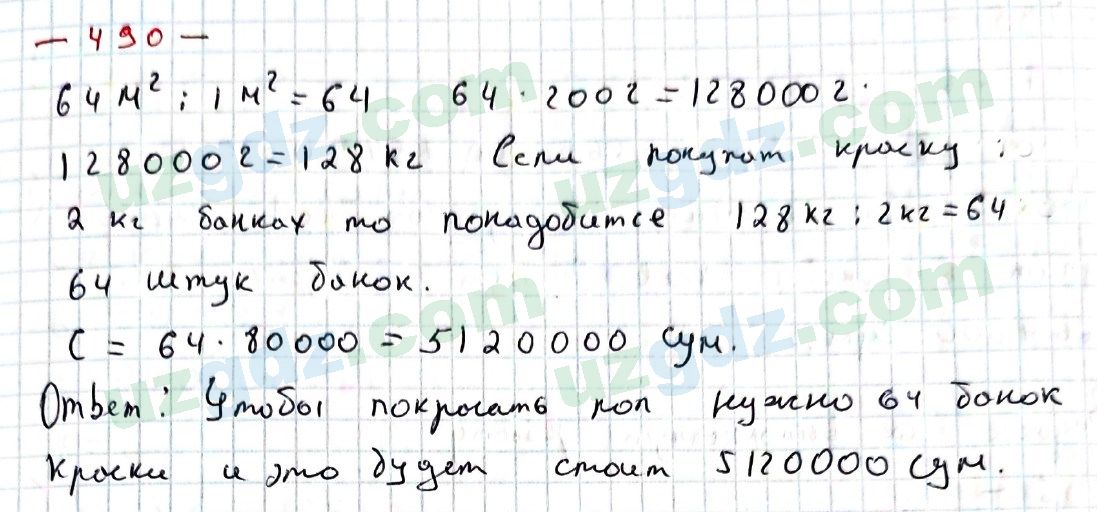 — 490 —
64 м² : 1 м² = 64 64 · 200г = 128000г.
128000г = 128 кг Если покупат краску :
2 кг банках то понадобитсе 128кг : 2кг = 64
64 штук банок.
C = 64 · 80000 = 5120000 сум.
Ответ: Чтобы покрасать пол нужно 64 банок
краски и это будет стоит 5120000 сум.
uzgdz.com uzgdz.com
uzgdz.com uzgdz.com